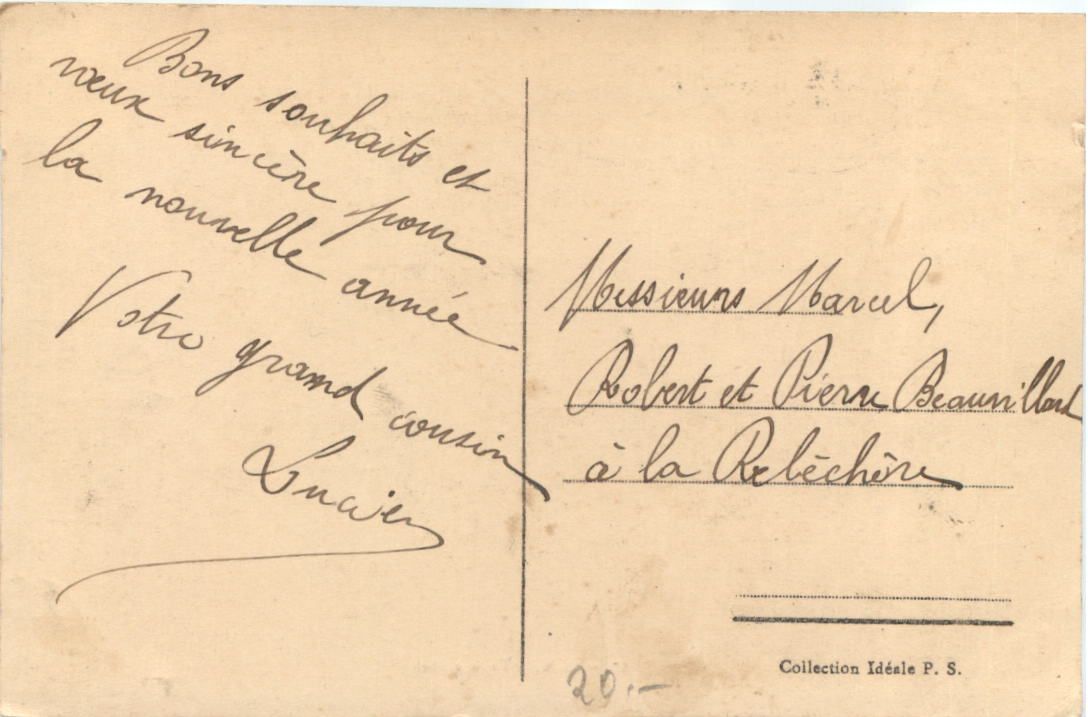 Bons souhaits et
vœux sincère pour
la nouvelle année
Votre grand cousin
Lucien
Messieurs Marcel,
Robert et Pierre Beauvillard
à la Rebéchère
Collection Idéale P. S.
20.-